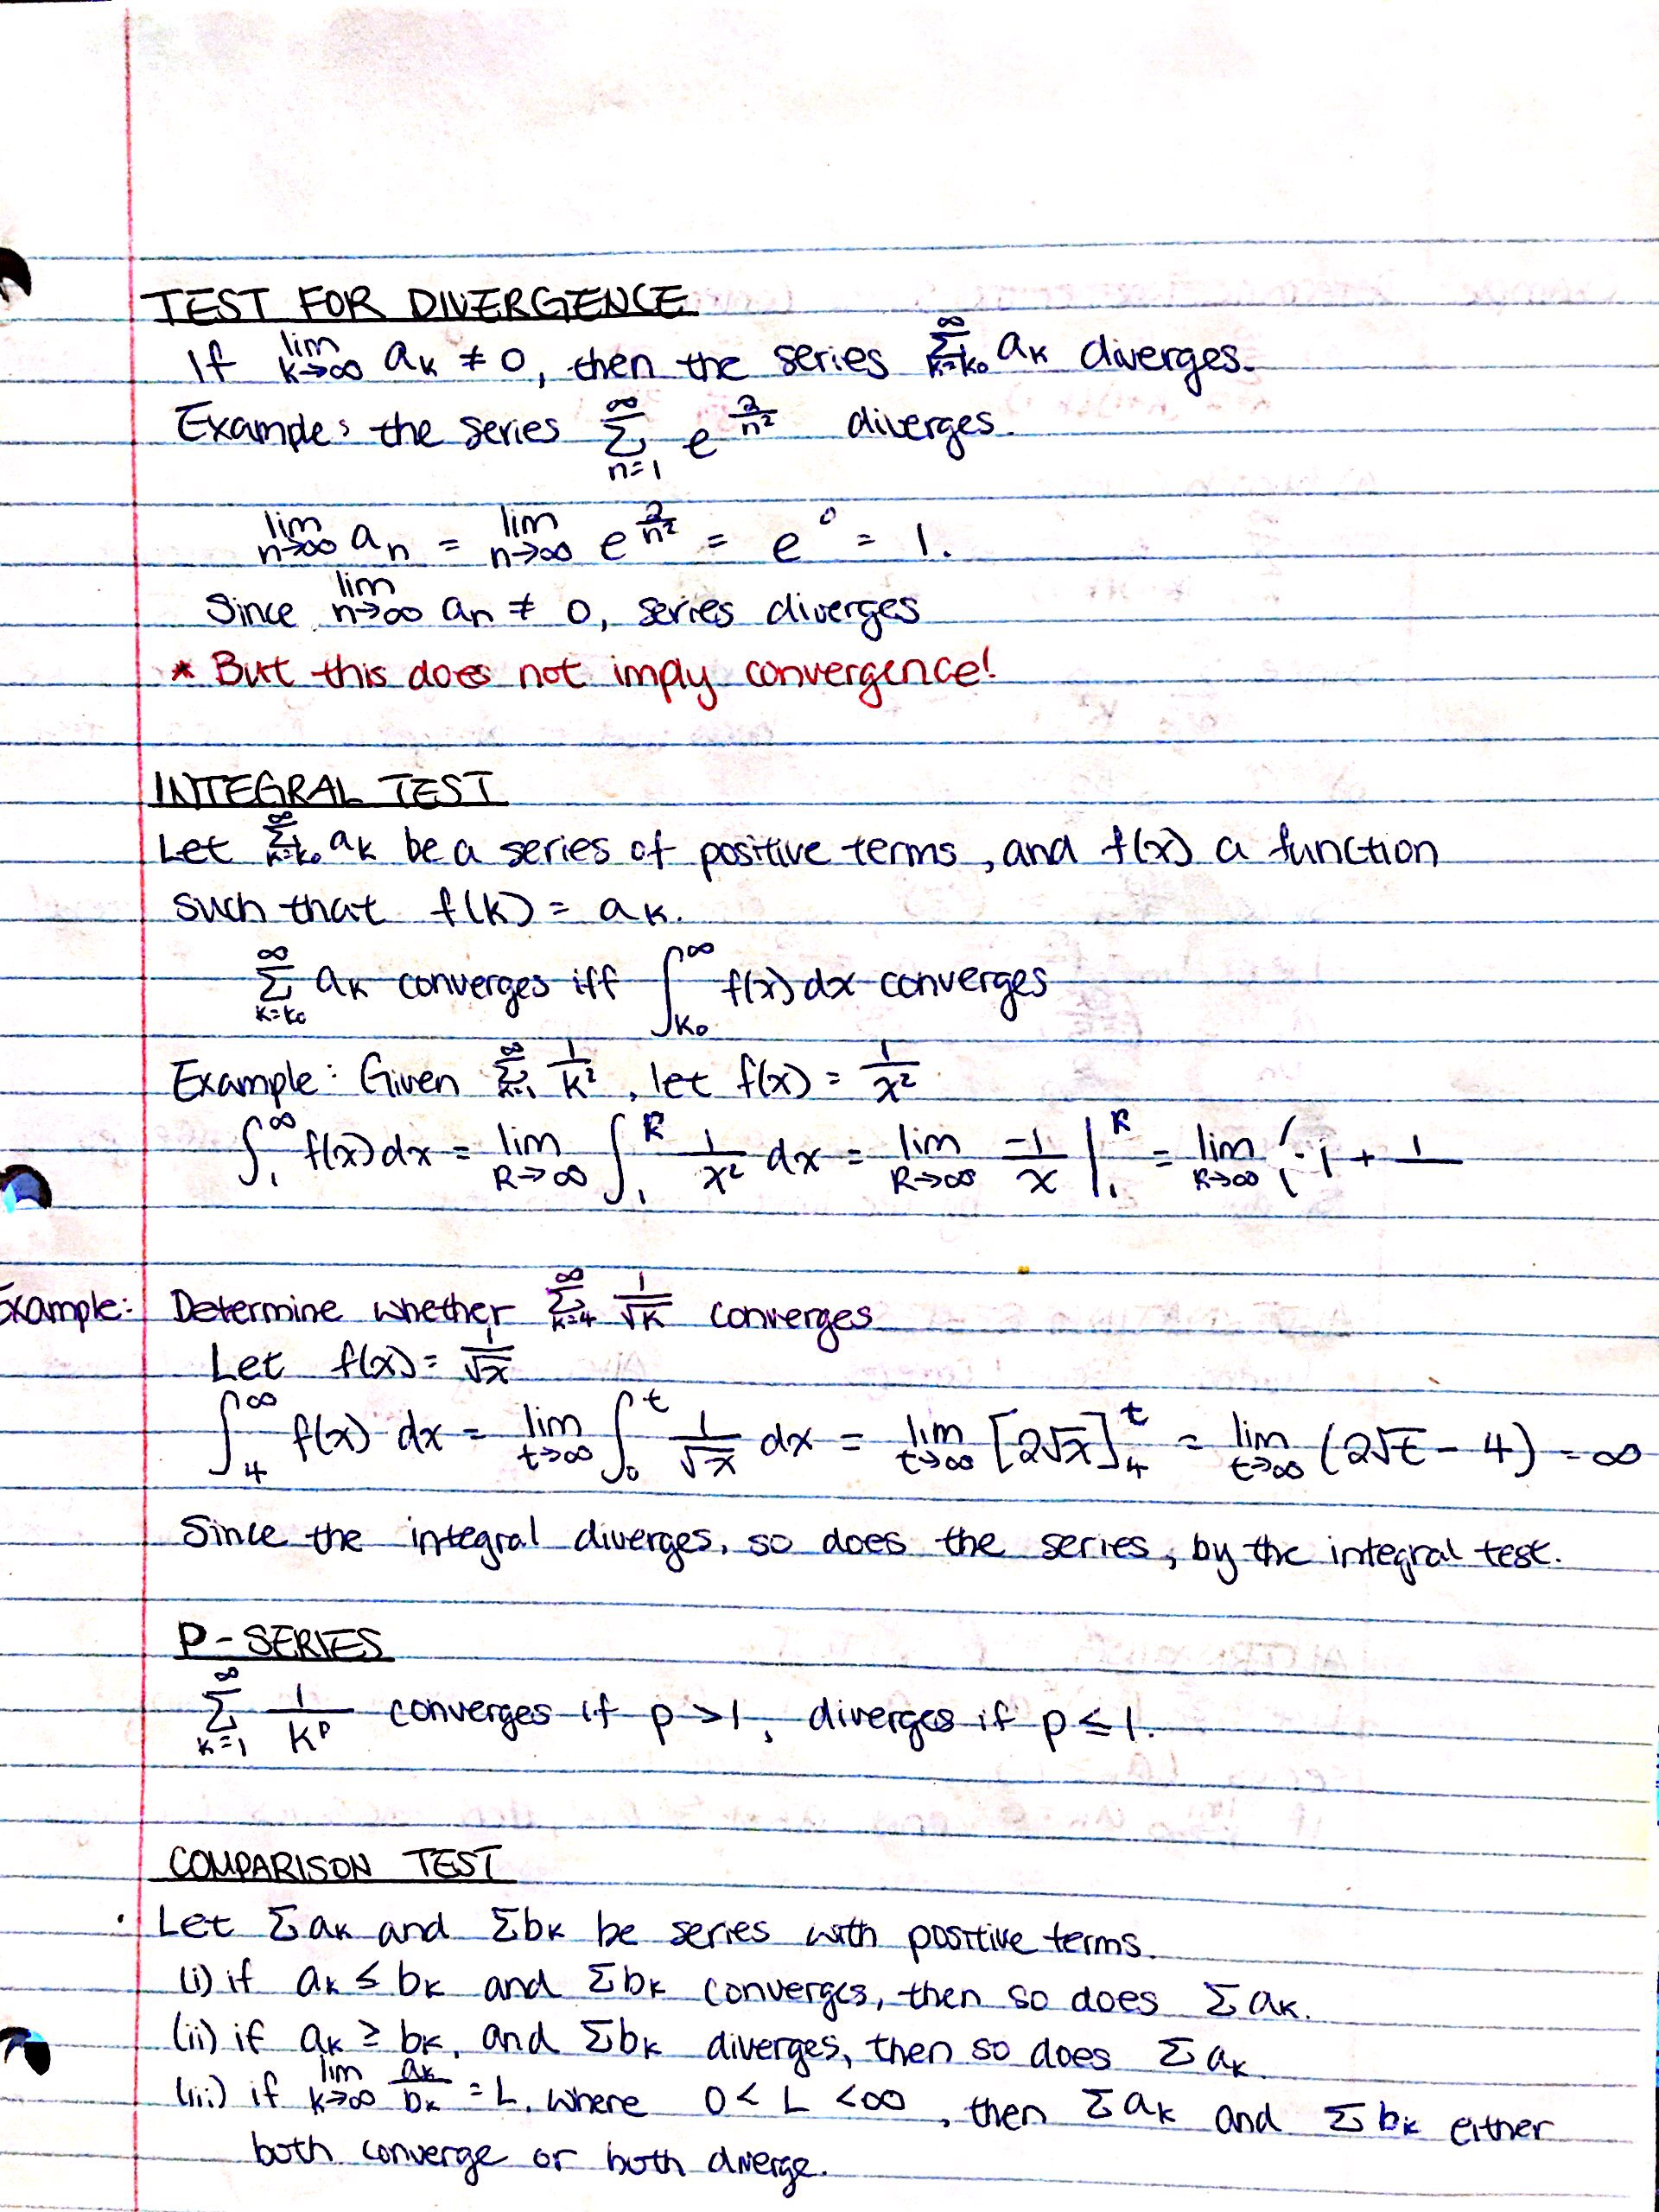 TEST FOR DIVERGENCE
If lim k→∞ aₖ ≠ 0, then the series ∞ Σ k=k₀ aₖ diverges.
Example: the series ∞ Σ n=1 e^(2/n²) diverges.
lim n→∞ aₙ = lim n→∞ e^(2/n²) = e⁰ = 1.
Since lim n→∞ aₙ ≠ 0, series diverges
* But this does not imply convergence!
INTEGRAL TEST
Let ∞ Σ k=k₀ aₖ be a series of positive terms, and f(x) a function
such that f(k) = aₖ.
∞ Σ k=k₀ aₖ converges iff ∫ₖ₀^∞ f(x) dx converges
Example: Given ∞ Σ k=1 1/k², let f(x) = 1/x²
∫₁^∞ f(x) dx = lim R→∞ ∫₁^R 1/x² dx = lim R→∞ -1/x |₁^R = lim R→∞ (-1 + 1
Example: Determine whether ∞ Σ k=4 1/√k converges
Let f(x) = 1/√x
∫₄^∞ f(x) dx = lim t→∞ ∫₀^t 1/√x dx = lim t→∞ [2√x]₄^t = lim t→∞ (2√t - 4) = ∞
Since the integral diverges, so does the series, by the integral test.
P-SERIES
∞ Σ k=1 1/k^p converges if p > 1, diverges if p ≤ 1.
COMPARISON TEST
· Let Σaₖ and Σbₖ be series with positive terms.
(i) if aₖ ≤ bₖ and Σbₖ converges, then so does Σaₖ.
(ii) if aₖ ≥ bₖ, and Σbₖ diverges, then so does Σaₖ
(iii) if lim k→∞ aₖ/bₖ = L, where 0 < L < ∞, then Σaₖ and Σbₖ either
both converge or both diverge.